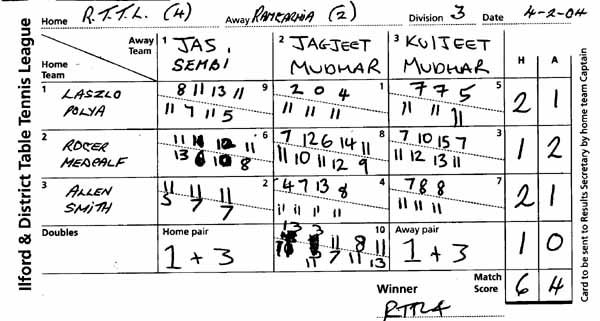 Ilford & District Table Tennis League
Home R.T.T.L. (4) Away RAMGARHIA (2) Division 3 Date 4-2-04
Away Team
Home Team
1 JAS. SEMBI
2 JAGJEET MUDHAR
3 KULJEET MUDHAR
H A
1 LASZLO POLYA
8 11 13 11 9
11 7 11 5
2 0 4 1
11 11 11
7 7 5 5
11 11 11
2 1
2 ROGER MEDCALF
6
7 12 6 14 11 8
11 10 11 12 9
7 10 15 7 3
11 12 13 11
1 2
3 ALLEN SMITH
11 11 11 2
5 7 7
4 7 13 8 4
11 11 11 11
7 8 8 7
11 11 11
2 1
Doubles
Home pair
1 + 3
10
11 8 11
11 7 11 13
Away pair
1 + 3
1 0
Winner
Match Score
6 4
Card to be sent to Results Secretary by home team Captain